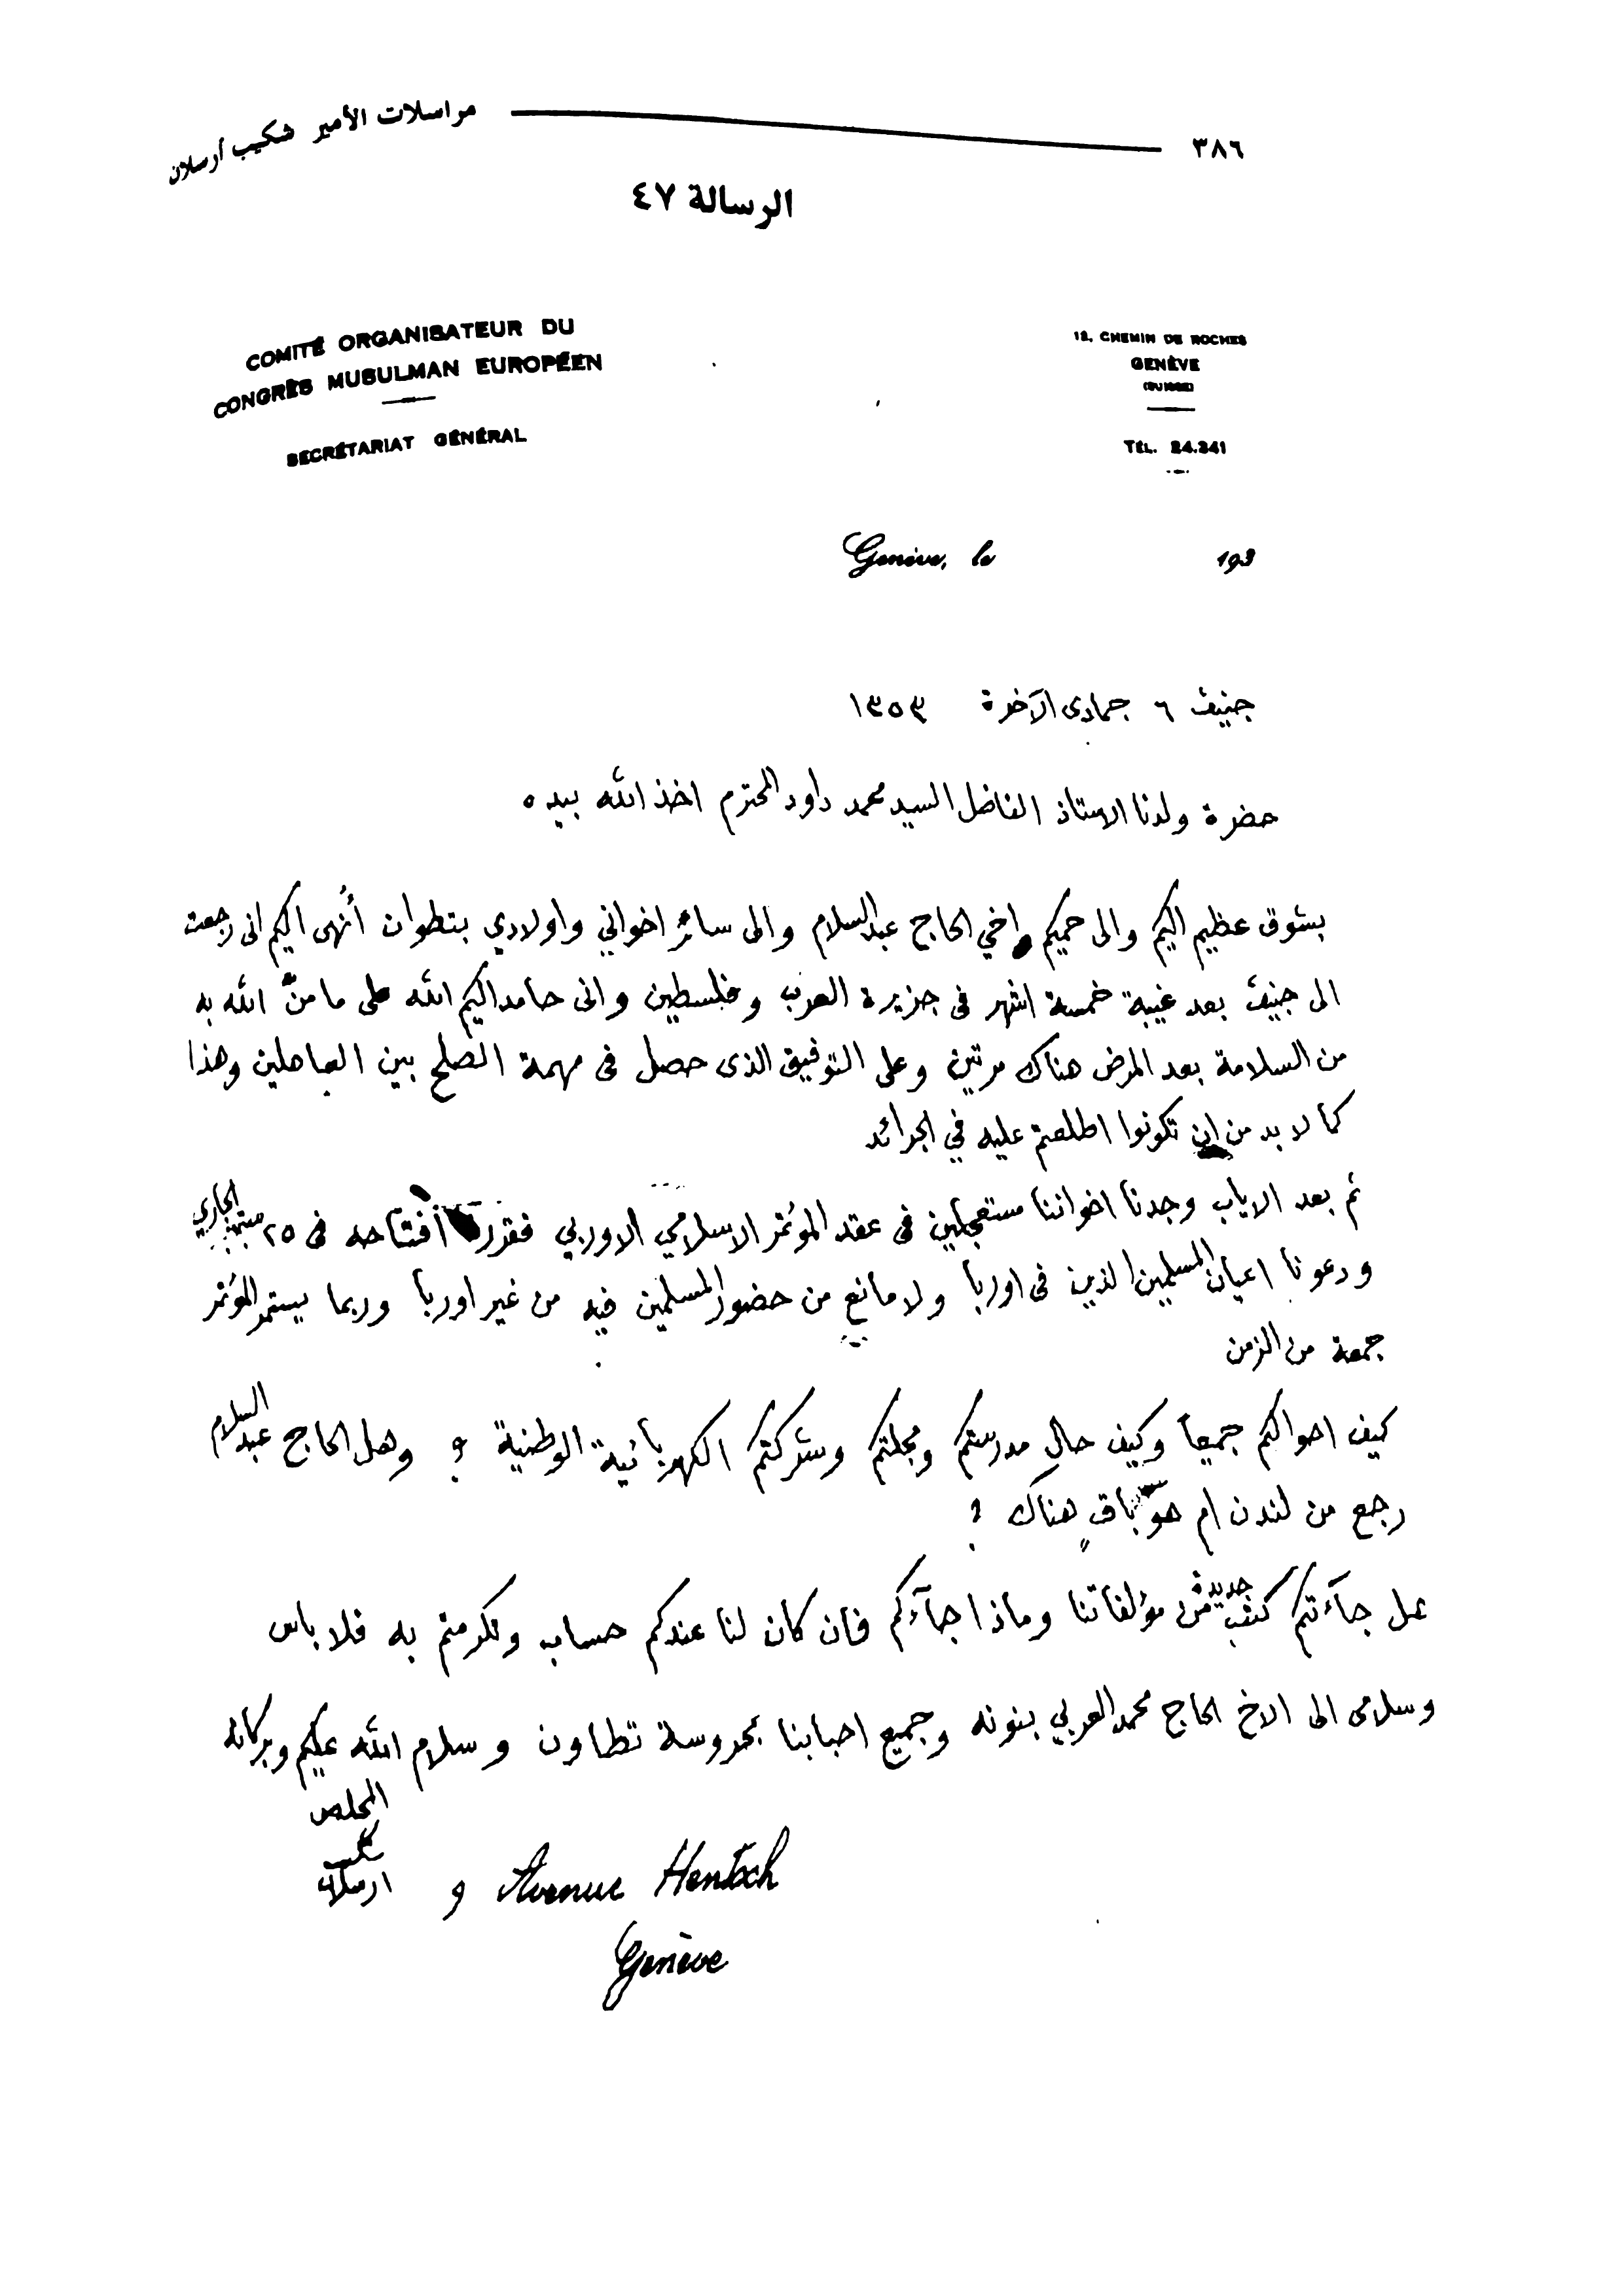 ٣٨٦ مراسلات الأمير شكيب أرسلان
الرسالة ٤٧
COMITÉ ORGANISATEUR DU
CONGRÈS MUSULMAN EUROPÉEN
SECRÉTARIAT GÉNÉRAL
12, CHEMIN DE ROCHES
GENÈVE
(SUISSE)
TÉL. 24.341
Genève, le 193
جنيف ٦ جمادى الآخرة ١٣٥٣
حضرة ولدنا الاستاذ الفاضل السيد محمد داود المحترم اخذ الله بيده
بشوق عظيم اليكم والى حميكم واخي الحاج عبد السلام والى سائر اخواني واولادي بتطوان أُنهى اليكم انى رجعت
الى جنيف بعد غيبة خمسة اشهر فى جزيرة العرب وفلسطين وانى حامد اليكم الله على ما منّ الله به
من السلامة بعد المرض هناك مرتين وعلى التوفيق الذى حصل فى مهمة الصلح بين العاهلين وهذا
كما لا بد من ان تكونوا اطلعتم عليه في الجرائد
ثم بعد الاياب وجدنا اخواننا مستعجلين فى عقد المؤتمر الاسلامي الاوربي فقررنا افتتاحه فى ٢٥ سبتمبر الجاري
ودعونا اعيان المسلمين الذين فى اوربا ولا مانع من حضور المسلمين فيه من غير اوربا وربما يستمر المؤتمر
جمعة من الزمن
كيف احوالكم جميعاً وكيف حال مدرستكم ومجلتكم وشركتكم الكهربائية الوطنية ؟ وهل الحاج عبد السلام
رجع من لندن ام هو باقٍ هناك ؟
هل جآءتكم كتب جديدة من مؤلفاتنا وماذا جآءكم فان كان لنا عندكم حساب وتكرمتم به فلا باس
وسلامى الى الاخ الحاج محمد العربي بنونه وجميع احبابنا بمحروسة تطاون وسلام الله عليكم وبركاته
المخلص
شكيب
ارسلان
9 Avenue Hentsch
Genève